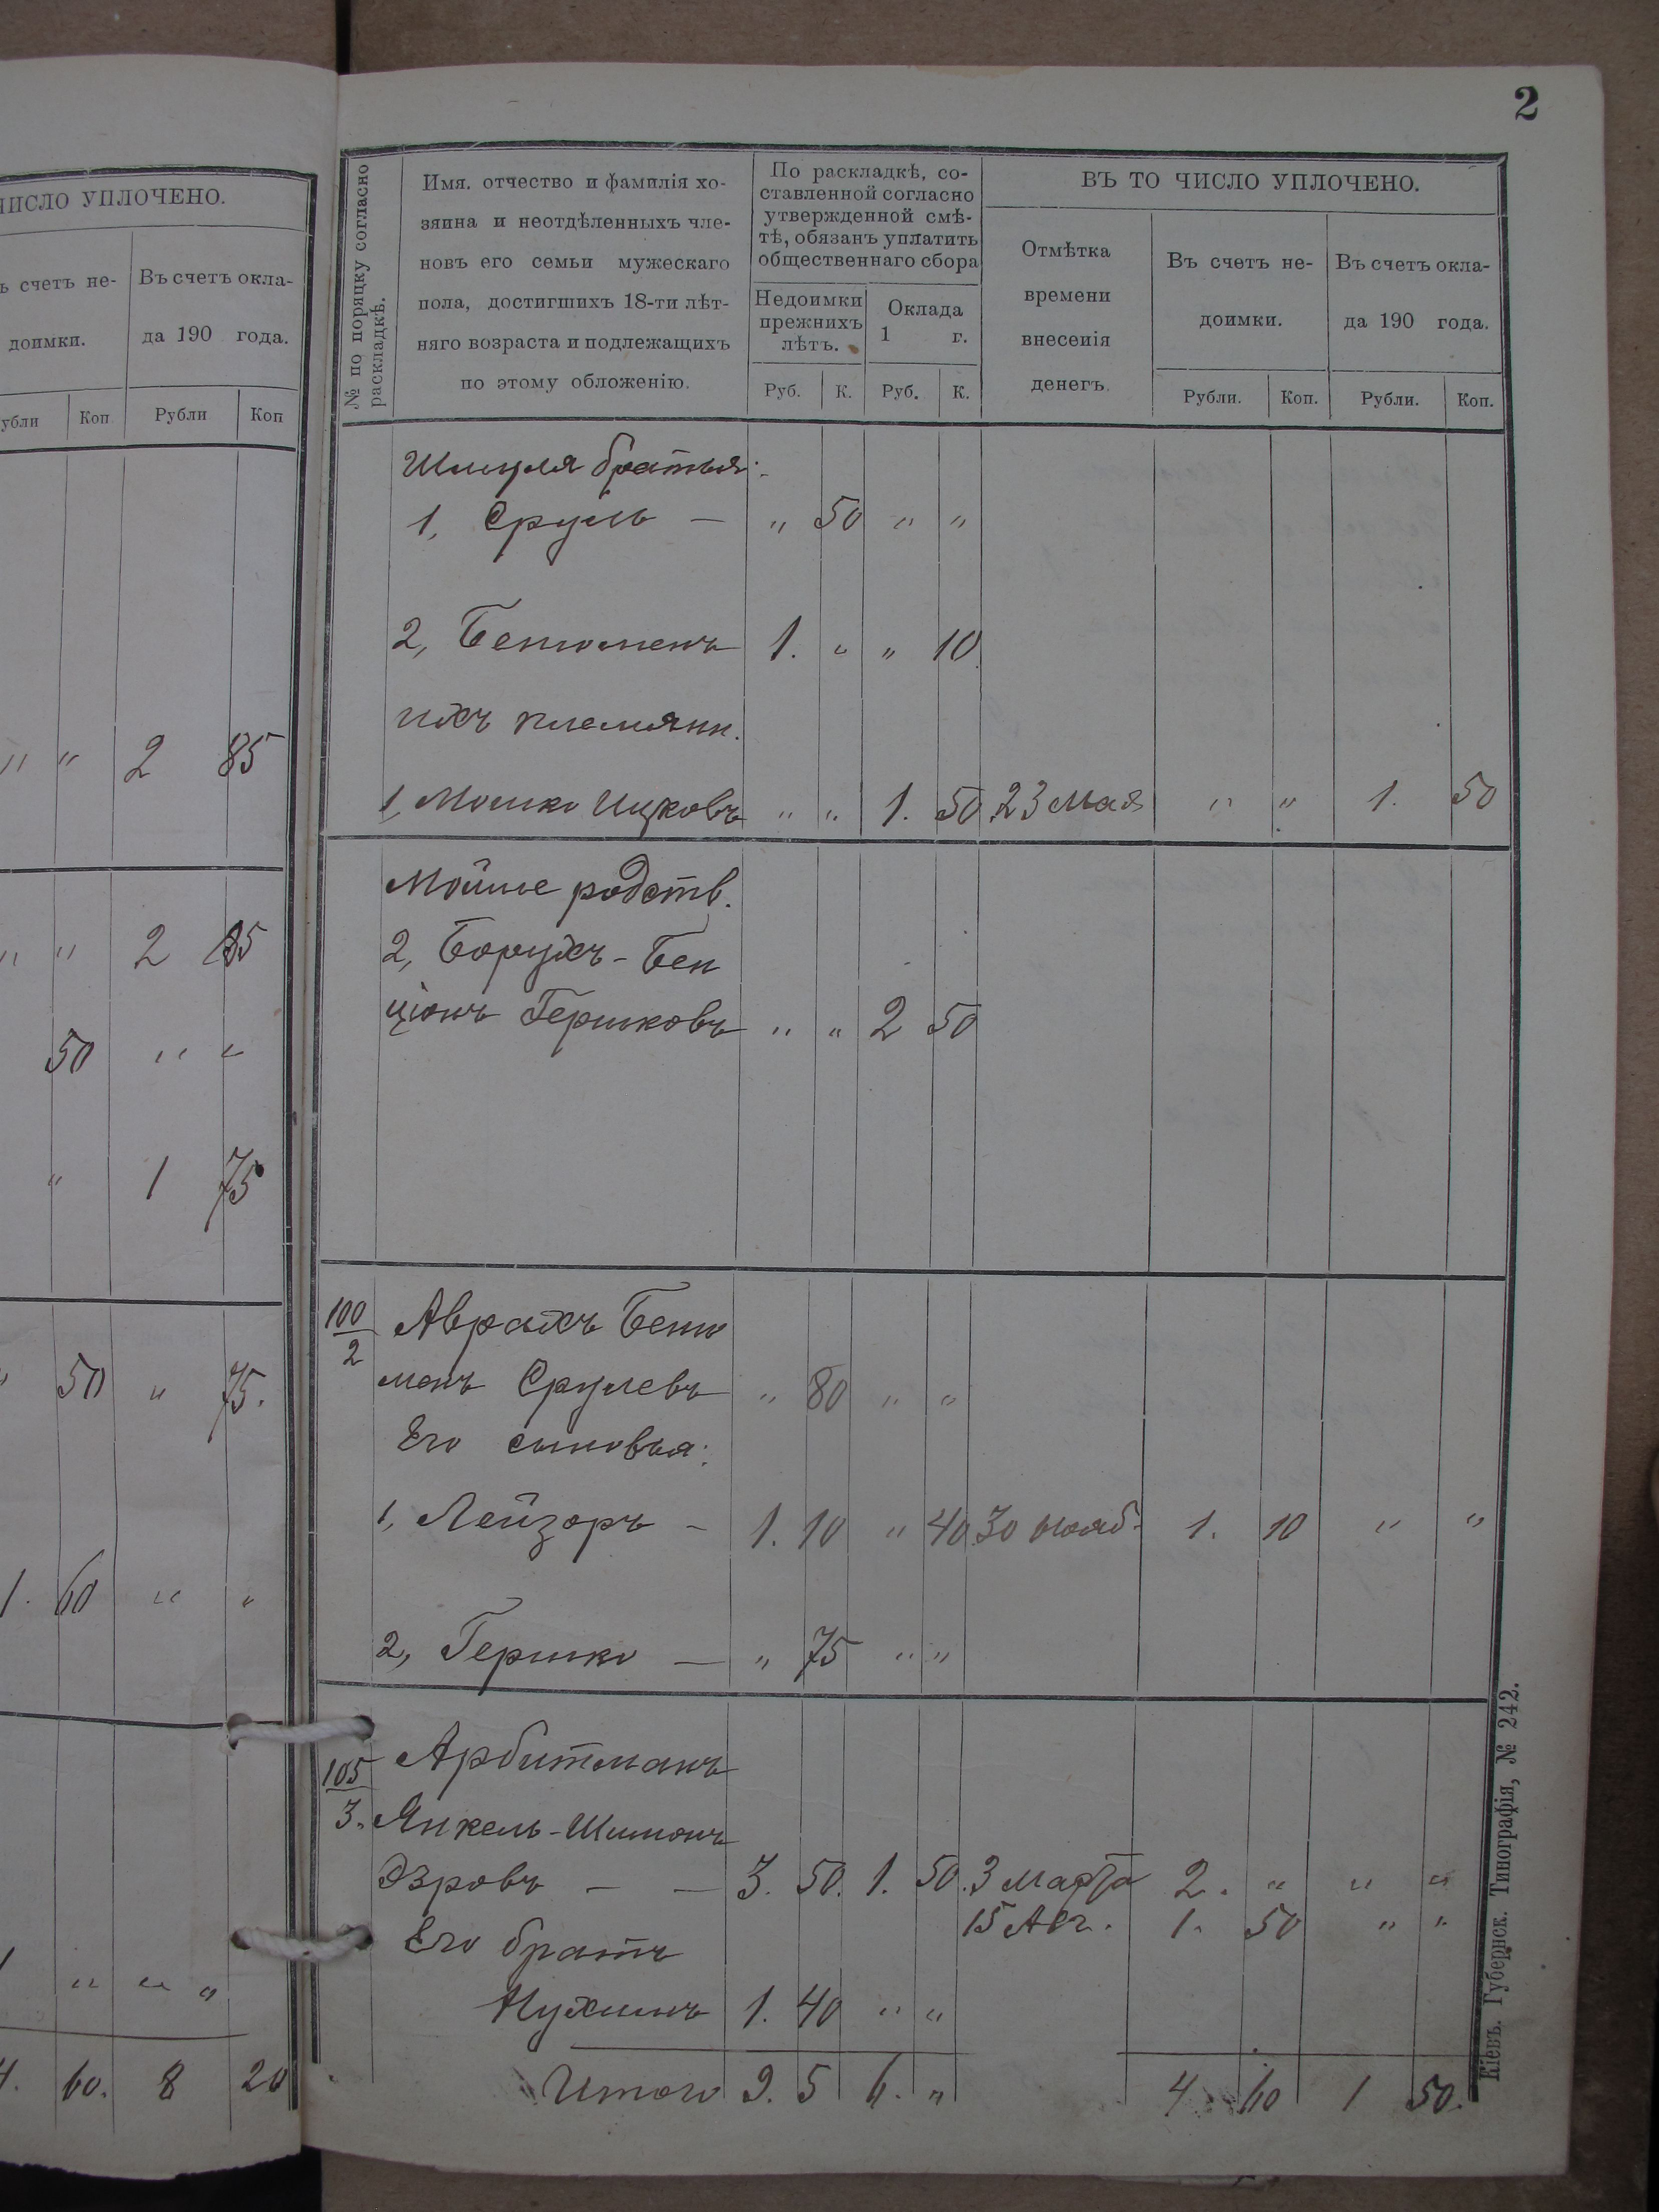 ЧИСЛО УПЛОЧЕНО.
ъ счетъ не-
доимки.
Въ счетъ окла-
да 190 года.
убли
Коп.
Рубли
Коп
" " 2 85
" " 2 85
50 " "
" 1 75
" 50 " 75.
1. 60 " "
1 " " "
4. 60. 8 20
2
№ по поряцку согласно
раскладкѣ.
Имя. отчество и фамилія хо-
зяина и неотдѣленныхъ чле-
новъ его семьи мужескаго
пола, достигшихъ 18-ти лѣт-
няго возраста и подлежащихъ
по этому обложенію.
По раскладкѣ, со-
ставленной согласно
утвержденной смѣ-
тѣ, обязанъ уплатить
общественнаго сбора
Недоимки
прежнихъ
лѣтъ.
Оклада
1 г.
Руб.
К.
Руб.
К.
ВЪ ТО ЧИСЛО УПЛОЧЕНО.
Отмѣтка
времени
внесенія
денегъ.
Въ счетъ не-
доимки.
Въ счетъ окла-
да 190 года.
Рубли.
Коп.
Рубли.
Коп.
Шмуля братья:
1, Сруль — " 50 " "
2, Бенюменъ 1. " " 10.
ихъ племянн.
1, Мошко Ицковъ " " 1. 50 23 Мая " " 1. 50
Мойше родств.
2, Борухъ-Бен
ціонъ Гершковъ " " 2 50
100/2 Аврахъ Беню
менъ Срулевъ " 80 " "
Его сыновья:
1, Лейзоръ - 1. 10 " 40 30 нояб. 1. 10 " "
2, Гершко — " 75 " "
105/3. Арбитманъ
Янкель-Шимонъ
Эзровъ — — 3. 50. 1. 50. 3 Марта 2. " " "
15 Авг. 1. 50 " "
Его братъ
Нухимъ 1. 40 " "
Итого 9. 5 6. " 4 60 1 50.
Кіевъ. Губернск. Типографія, № 242.